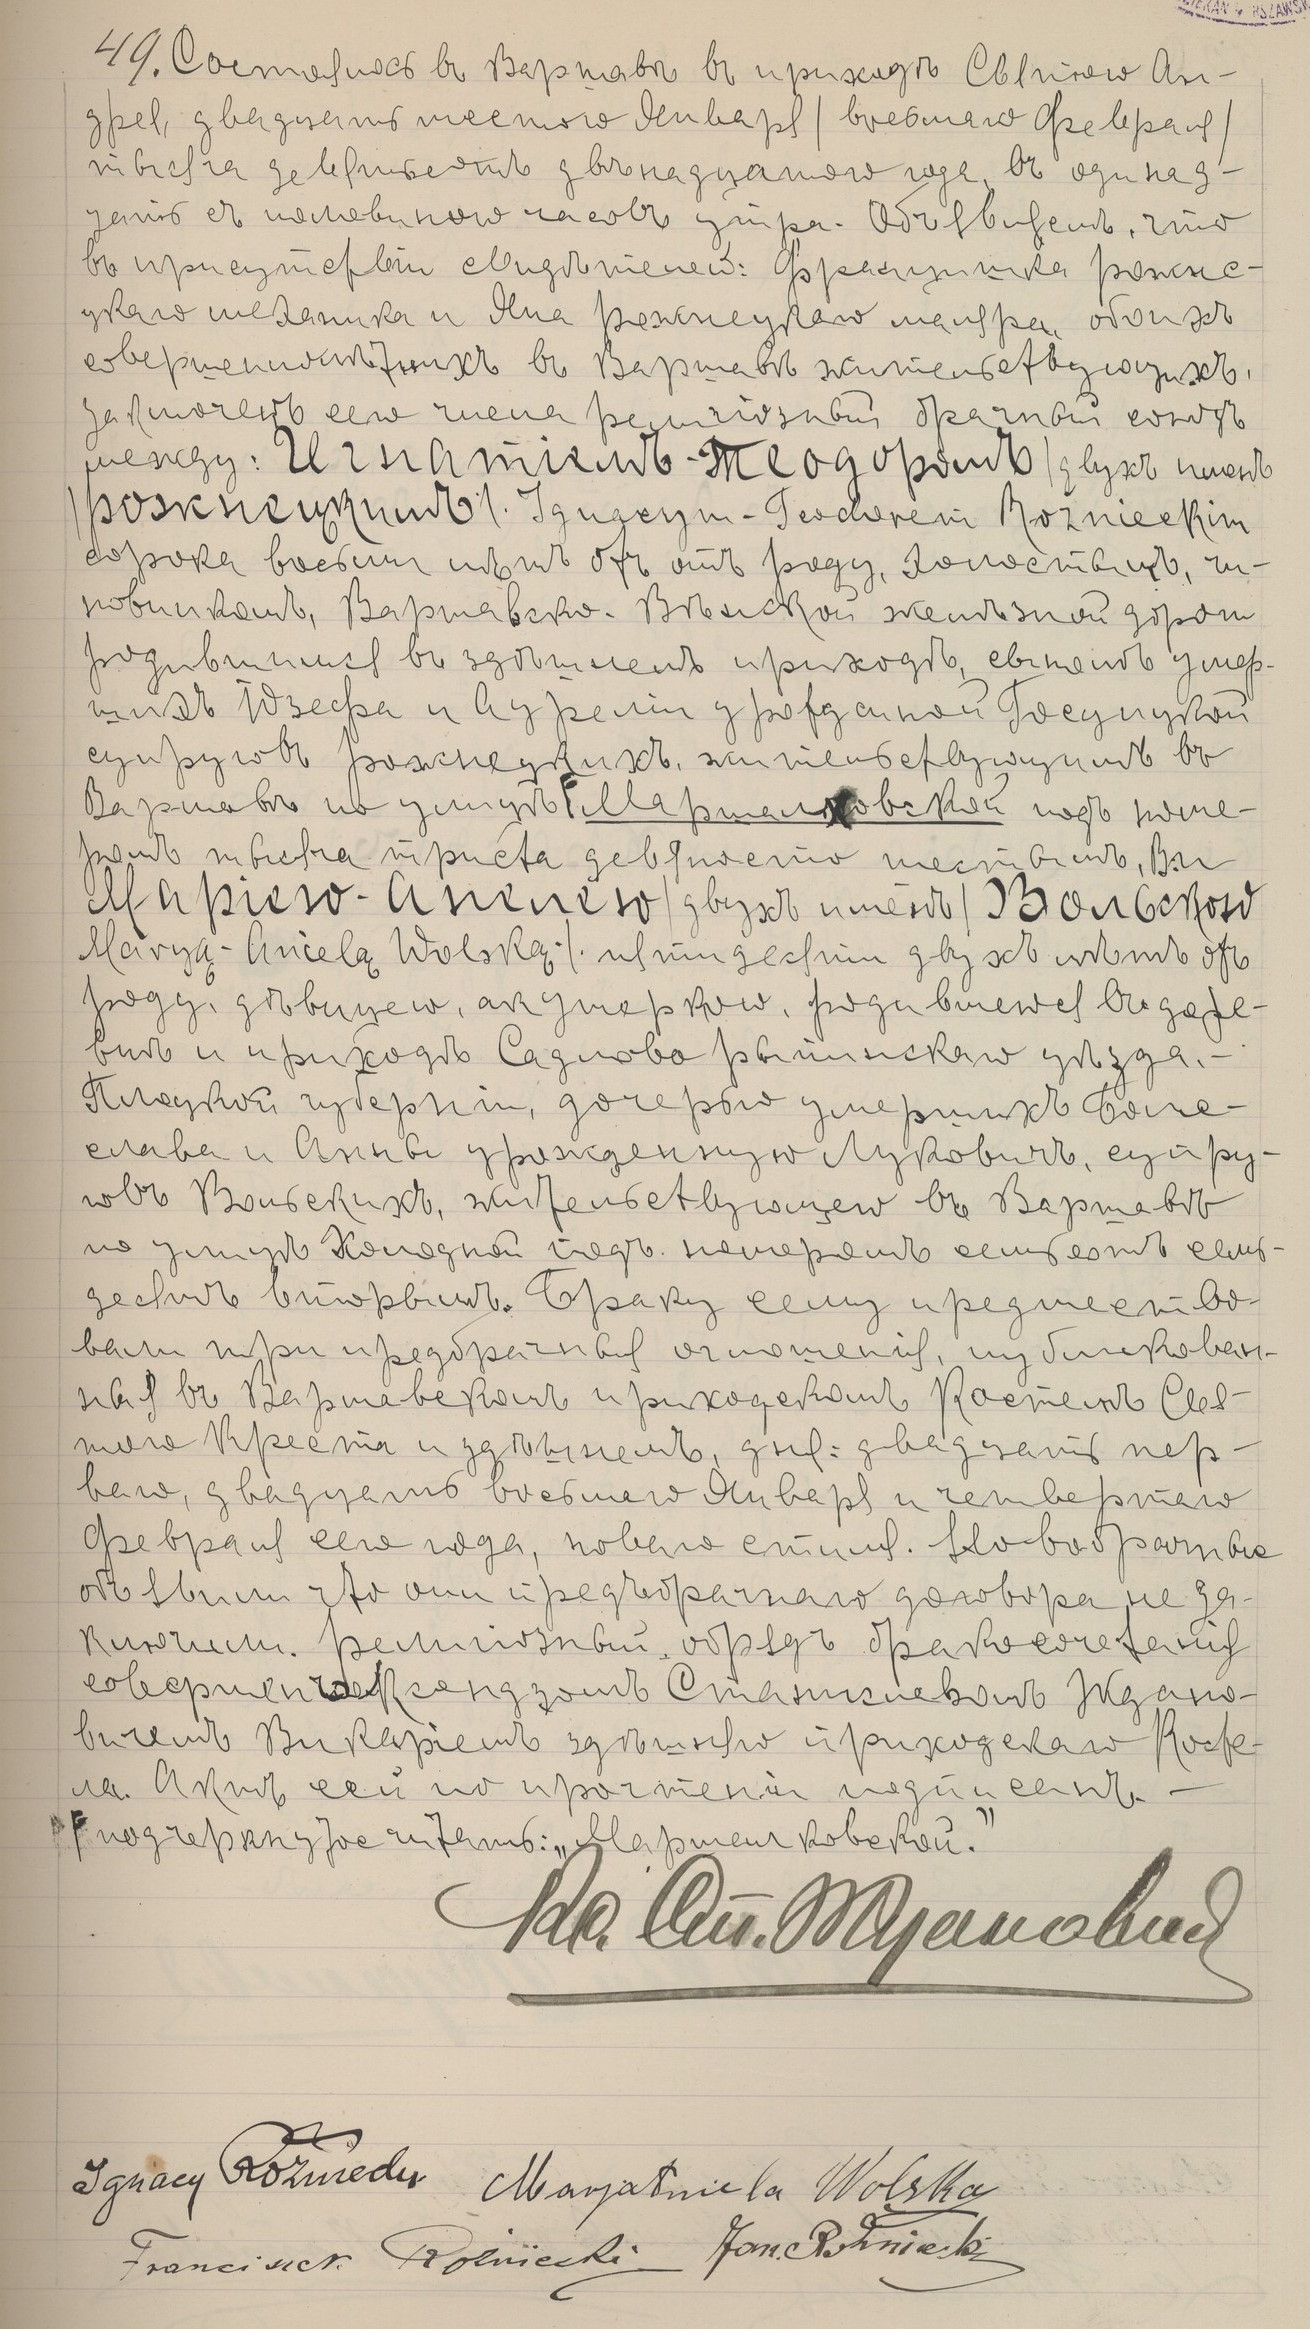 49. Состоялось въ Варшавѣ въ приходѣ Святого Ан-
дрея, двадцать шестого Января / восьмаго Февраля /
тысяча девятьсотъ двѣнадцатого года, въ одинад-
цать съ половиною часовъ утра. Объявляемъ, что
въ присутствіи свидѣтелей: Францишка рожне-
цкаго механика и Яна рожнецкаго маляра, обоихъ
совершеннолѣтнихъ въ Варшавѣ жительствующихъ,
заключенъ сего числа религіозный брачный союзъ
между: Игнатіемъ-Теодоромъ / двухъ именъ
/ рожнецкимъ /. Ignacym-Teodorem Rożnieckim
сорока восьми лѣтъ отъ роду, холостымъ, чи-
новникомъ, Варшавско-Вѣнской желѣзной дороги
родившимся въ здѣшнемъ приходѣ, сыномъ умер-
шихъ Юзефа и Аурелии урожденной
супруговъ рожнецкихъ, жительствующимъ въ
Варшавѣ по улицѣ Маршалковской подъ номе-
ромъ тысяча триста девяносто шестымъ,
Маріею-Анелею / двухъ именъ / Вольскою
Maryą-Anielą Wolską /. пятидесяти двухъ лѣтъ отъ
роду, дѣвицею, акушеркою, родившеюся
и приходѣ Садлово рыпинскаго уѣзда,-
Плоцкой губерніи, дочерью умершихъ Боле-
слава и Анны урожденную Луковичъ, супру-
говъ Вольскихъ, жительствующею въ Варшавѣ
по улицѣ Холодной подъ номеромъ семьсотъ семь-
десятъ вторымъ. Браку сему предшество-
вали три предбрачныя оглошенія, публикован-
ныя въ Варшавскомъ приходскомъ Костелѣ Свя-
того Креста и здѣшнемъ, дня: двадцать пер-
ваго, двадцать восьмаго Января и четвертаго
Февраля сего года, новаго стиля. Новобрачные
объявили что они предъбрачнаго договора не за-
ключили. религіозный обрядъ бракосочетанія
совершенъ Ксендзомъ Станиславомъ Ждано-
вичемъ Викаріемъ здѣшняго приходскаго Косте-
ла. Актъ сей по прочтеніи подписанъ. -
подчеркнутое читать: „Маршалковской."
Кс. Ст. Ждановичъ
Ignacy Rożniecki Marja Aniela Wolska
Franciszek Rożniecki Jan Rożniecki